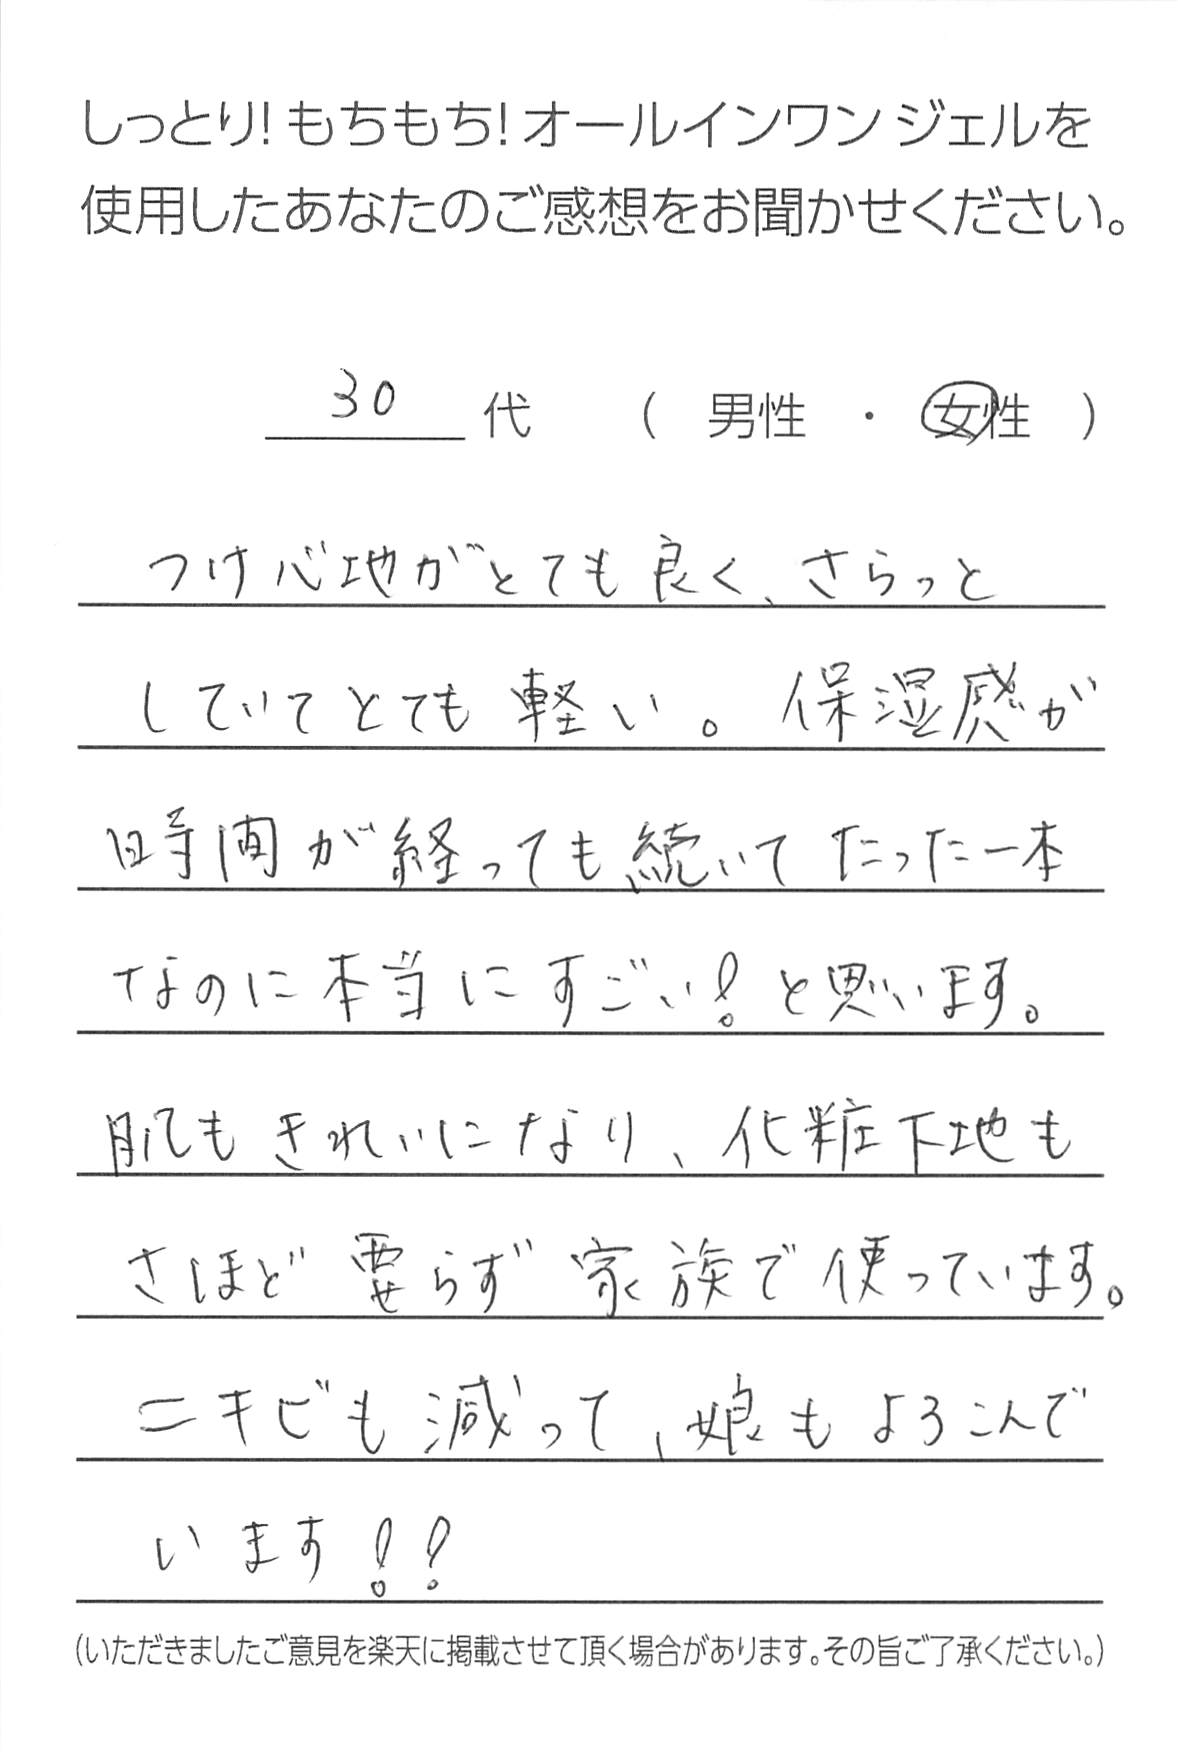 しっとり! もちもち! オールインワン ジェルを
使用したあなたのご感想をお聞かせください。
30 代 ( 男性 ・ 女性 )
つけ心地がとても良く、さらっと
していてとても軽い。保湿感が
時間が経っても続いてたった一本
なのに本当にすごい!と思います。
肌もきれいになり、化粧下地も
さほど要らず家族で使っています。
ニキビも減って、娘もよろこんで
います!!
(いただきましたご意見を楽天に掲載させて頂く場合があります。その旨ご了承ください。)